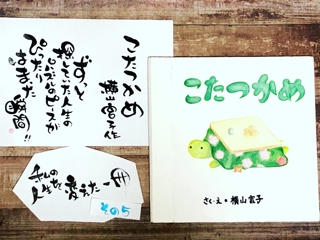 こたつかめ
横山宮子作
ずっと
探していた人生の
ピースが
ぴったり
はまった
瞬間!!
私の
人生を
変えた一冊
その5
こたつかめ
さく・え・横山宮子